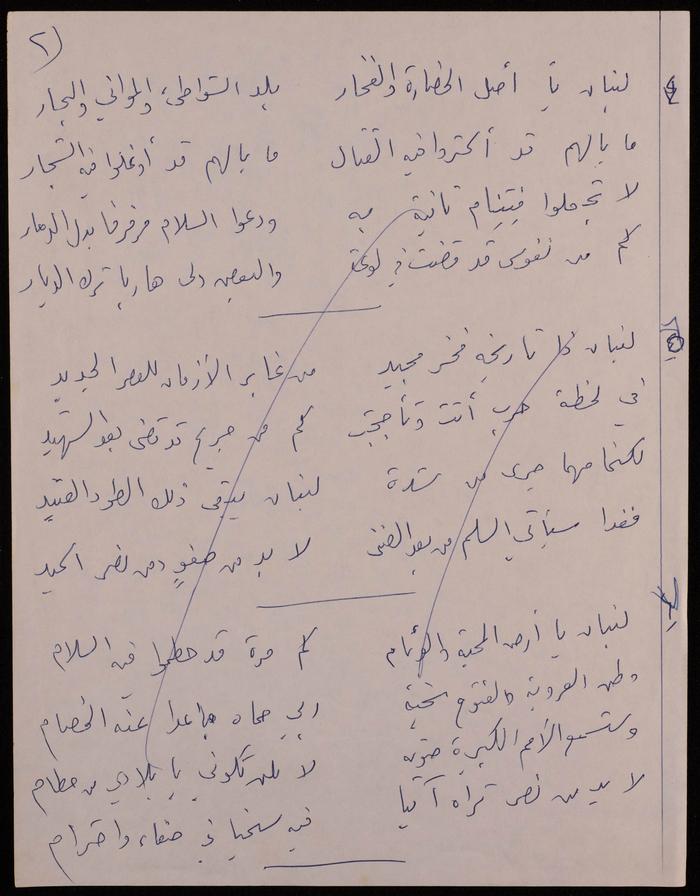 (٢
لبنان يا أصل الحضارة والفخار بلد الشواطئ، والمواني والبحار
ما بالهم قد أكثروا فيه القتال ما بالهم قد أوغلوا فيه الشجار
لا تجعلوا فيتنام ثانية به ودعوا السلام مرفرفا بدل الدمار
كم من نفوس قد قضت في لوعة والبعض ولى هاربا ترك الديار
لبنان ذا تاريخه فخر مجيد من غابر الأزمان للعصر الجديد
في لحظة حرب أتت وتأججت كم من جريح قد قضى بعد الشهيد
لكنما مهما جرى من شدة لبنان يبقى ذلك الطود العتيد
فغدا سيأتي السلم من بعد الضنى لا بد من صفوٍ ومن نصر اكيد
لبنان يا أرض المحبة والوئام كم مرة قد حطموا فيه السلام
وطن العروبة والفتوح تحية الى حماه عنه الخصام
وستسمع الأمم الكبيرة صوته لا لن تكوني يا بلادي من حطام
لا بد من نصر نراه آتيا فيه سنحيا في صفاء واحترام